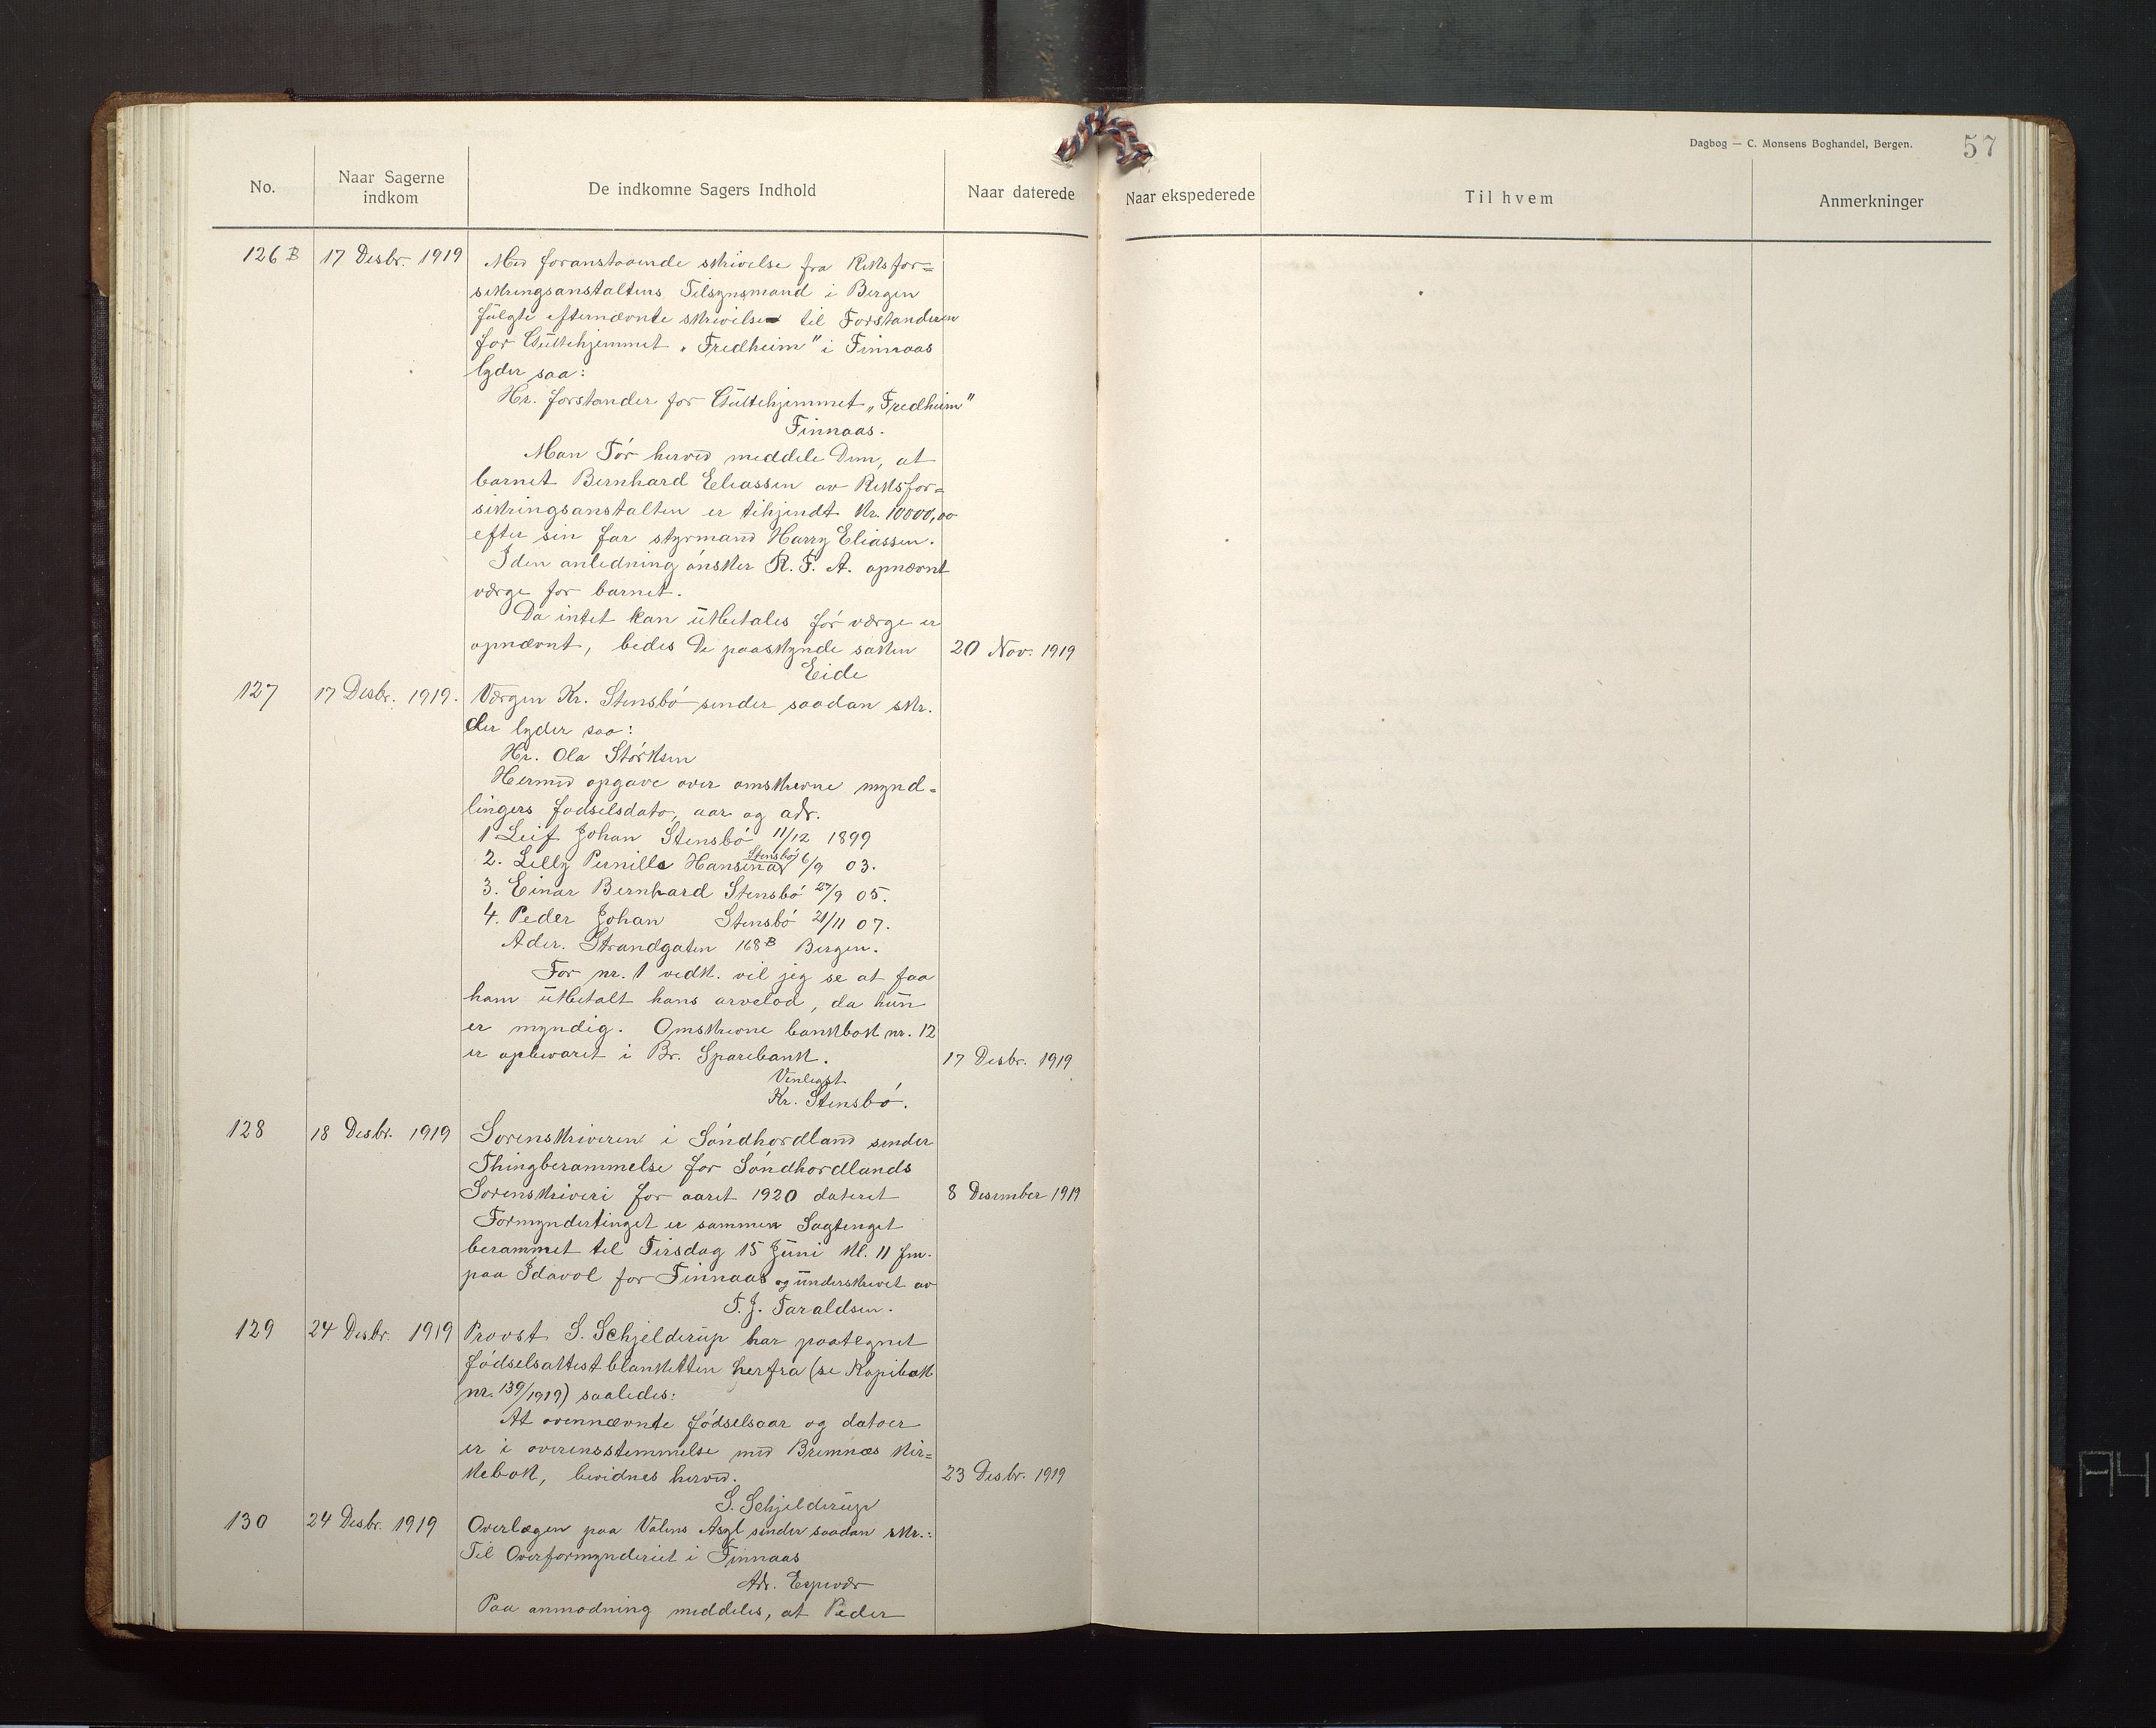 Dagbog — C. Monsens Boghandel, Bergen. 57
No. Naar Sagerne indkom De indkomne Sagers Indhold Naar daterede Naar ekspederede Til hvem Anmerkninger
126 B 17 Desbr. 1919 Med foranstaaende skrivelse fra Riksfor=
sikringsanstaltens Tilsynsmand i Bergen
fulgte efternævnte skrivelse til Forstanderen
for Guttehjemmet „Fredheim" i Finnaas
lyder saa:
Hr. forstander for Guttehjemmet „Fredheim"
Finnaas.
Man Tør herved meddele Dem, at
barnet Bernhard Eliassen av Riksfor=
sikringsanstalten er tilkjendt Kr. 10000,00
efter sin far styrmand Harry Eliassen.
I den anledning ønsker R. F. A. opnævnt
værge for barnet.
Da intet kan utbetales før værge er
opnævnt, bedes De paaskynde saken 20 Nov. 1919
Eide
127 17 Desbr. 1919. Værgen Kr. Stensbø sender saadan skr.
der lyder saa:
Hr. Ola Størksen
Hermed opgave over omskrevne mynd=
lingers fødselsdato, aar og adr.
1 Leif Johan Stensbø 11/12 1899
2. Lilly Pernille Hansina Stensbø 6/9 03.
3. Einar Bernhard Stensbø 27/9 05.
4. Peder Johan Stensbø 21/11 07.
Adr. Strandgaten 168B Bergen.
For nr. 1 vedk. vil jeg se at faa
ham utbetalt hans arvelod, da hun
er myndig. Omskrevne bankbok nr. 12
er opbevaret i Br. Sparebank. 17 Desbr. 1919
Venligst
Kr. Stensbø.
128 18 Desbr. 1919 Sorenskriveren i Søndhordland sender
Thingberammelse for Søndhordlands
Sorenskriveri for aaret 1920 dateret 8 Desember 1919
Formyndertinget er sammen Sagtinget
berammet til Tirsdag 15 Juni kl. 11 fm.
paa Idavol for Finnaas og underskrevet av
T. J. Taraldsen.
129 24 Desbr. 1919 Provst S. Schjelderup har paategnet
fødselsattestblanketten herfra (se Kopibok
nr. 139/1919) saaledes:
At ovennævnte fødselsaar og datoer
er i overensstemmelse med Bremnes kir=
kebok, bevidnes herved. 23 Desbr. 1919
S. Schjelderup
130 24 Desbr. 1919 Overlægen paa Valens Asyl sender saadan skr.:
Til Overformynderiet i Finnaas
Adr. Espevær
Paa anmodning meddeles, at Peder